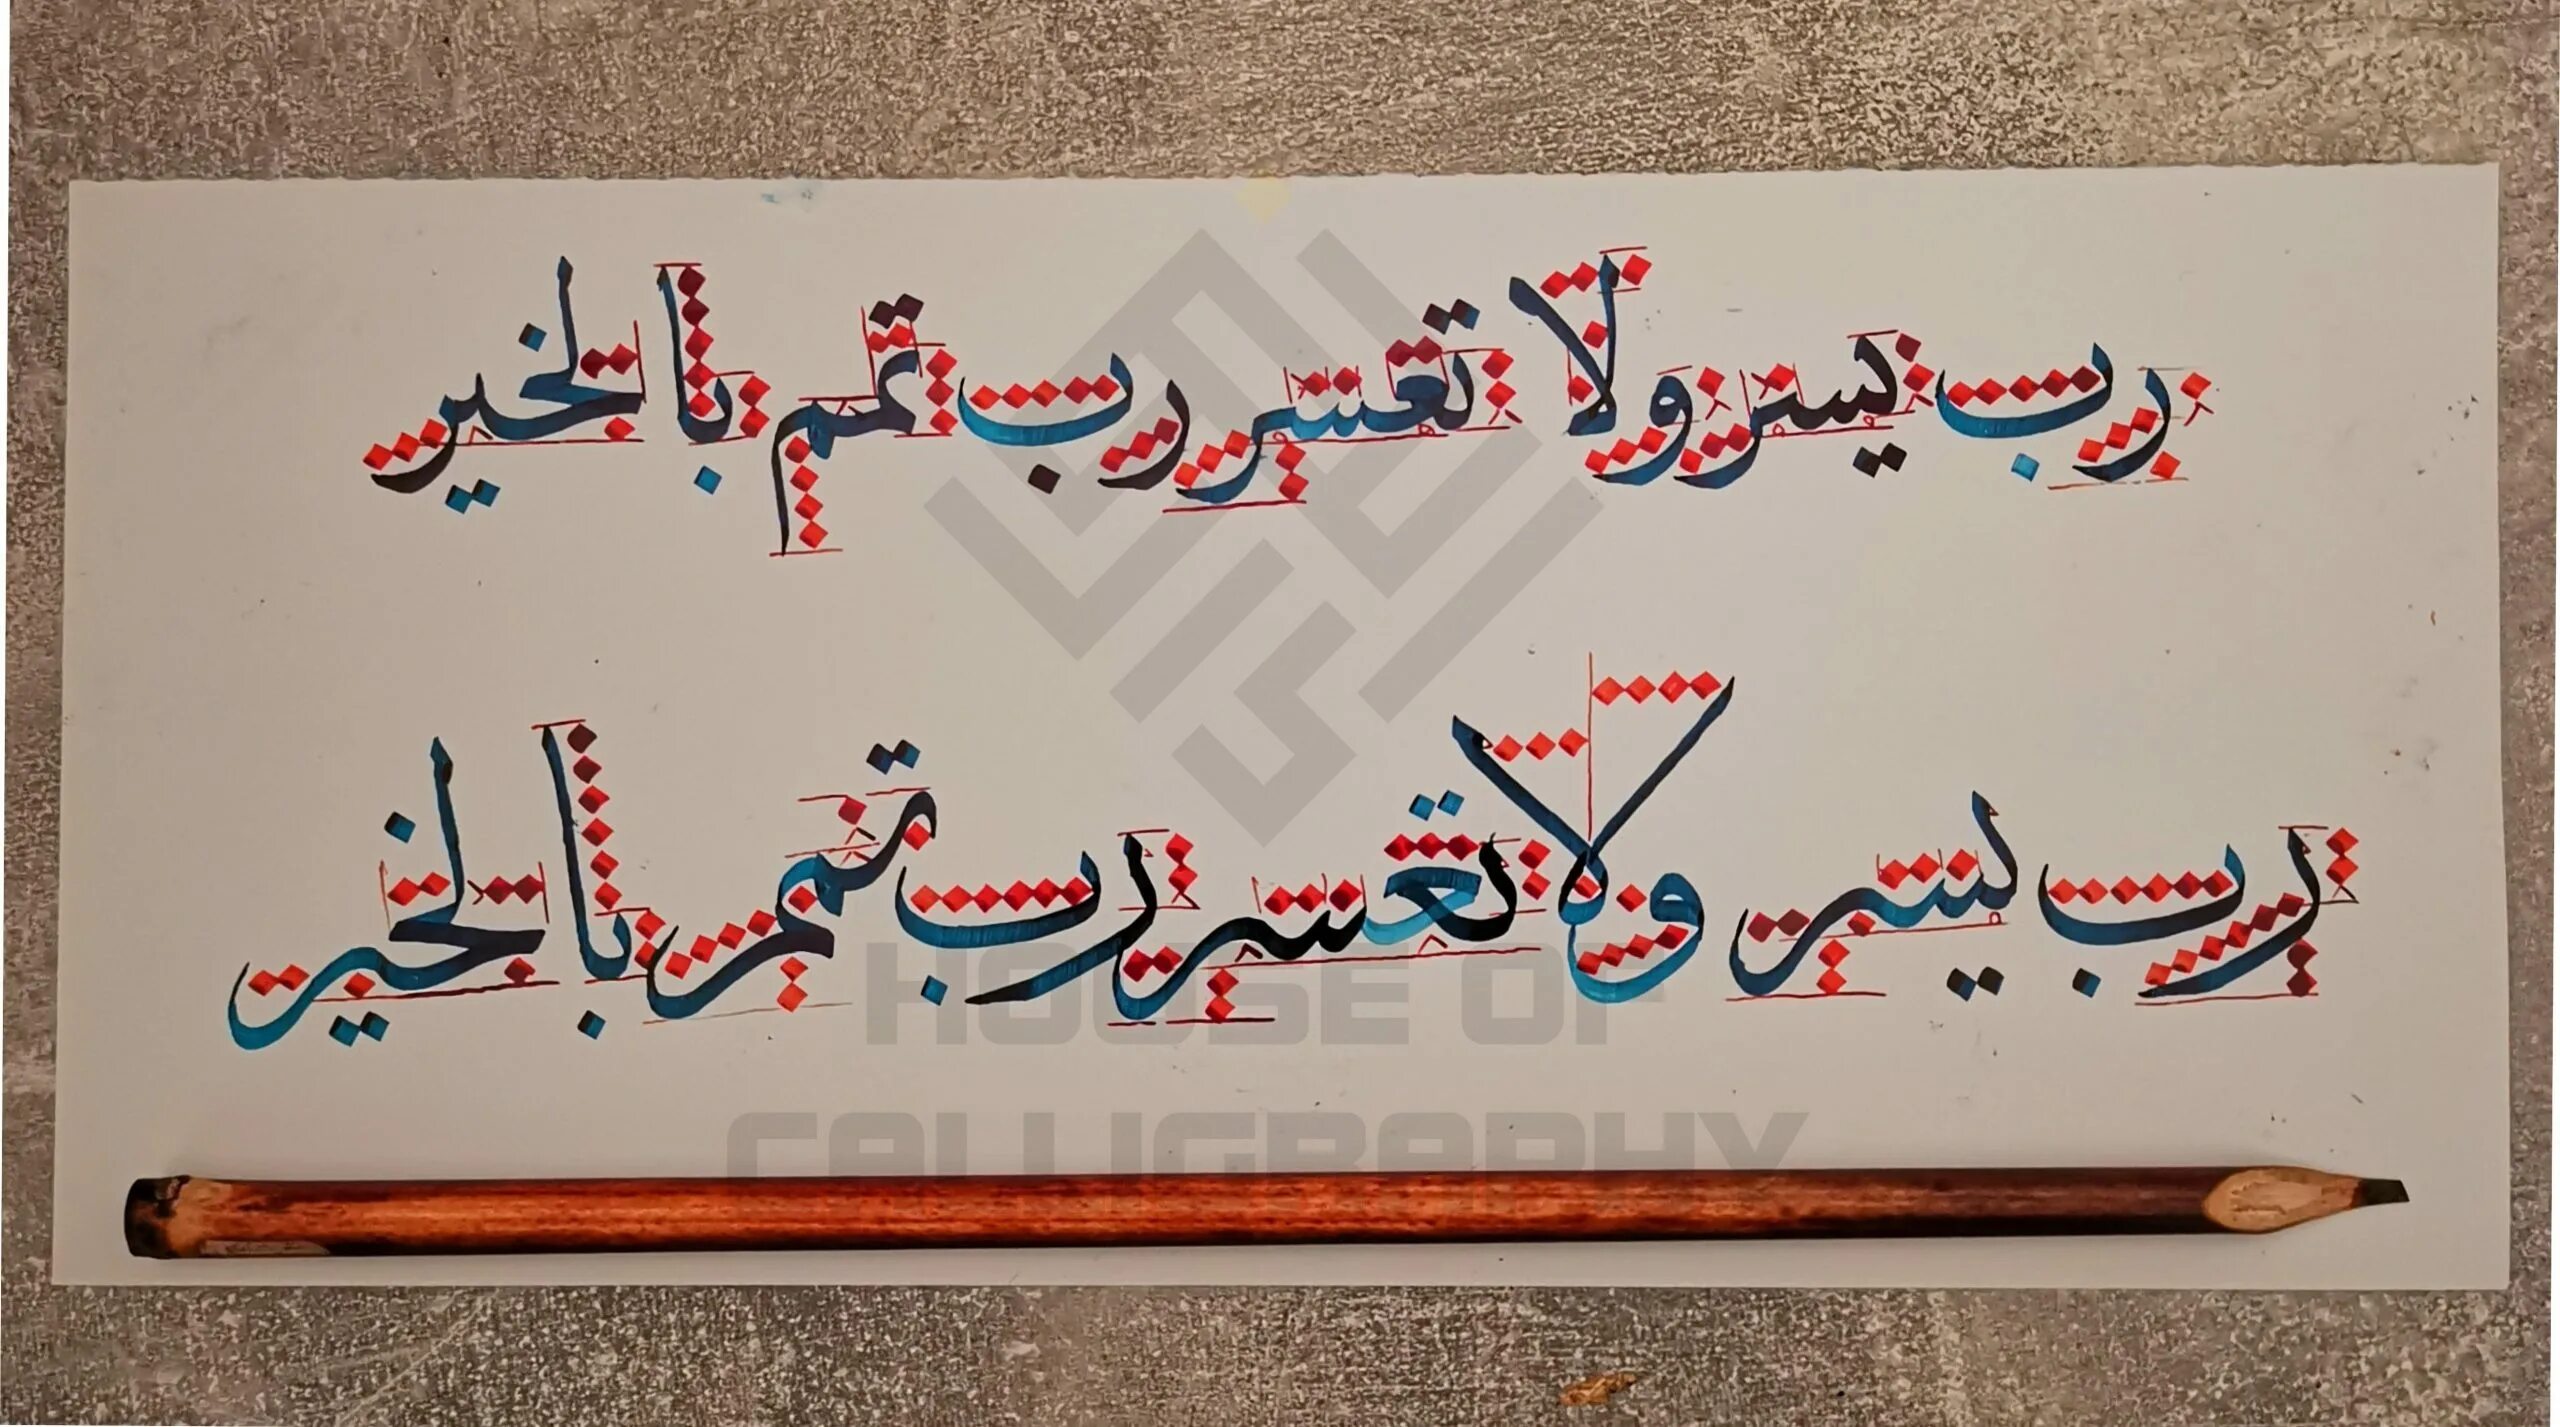 رب يسر ولا تعسر رب تمم بالخير
رب يسر ولا تعسر رب تمم بالخير
HOUSE OF
CALLIGRAPHY